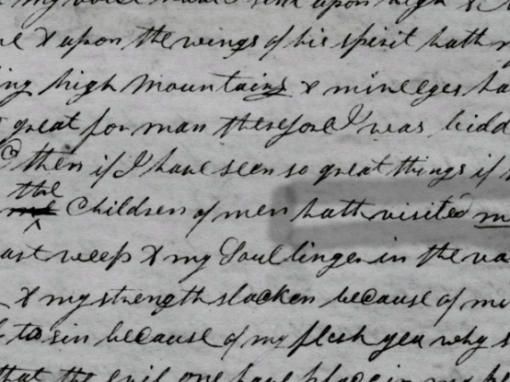 upon high
& upon the wings of his spirit hath
ing high mountains & mine eyes ha
great for man therefore I was bidd
then if I have seen so great things if
the
Children of men hath visited m
weep & my Soul linger in the va
& my strength slacken because of mi
to sin because of my flesh yea why s
that the evil one have place in my